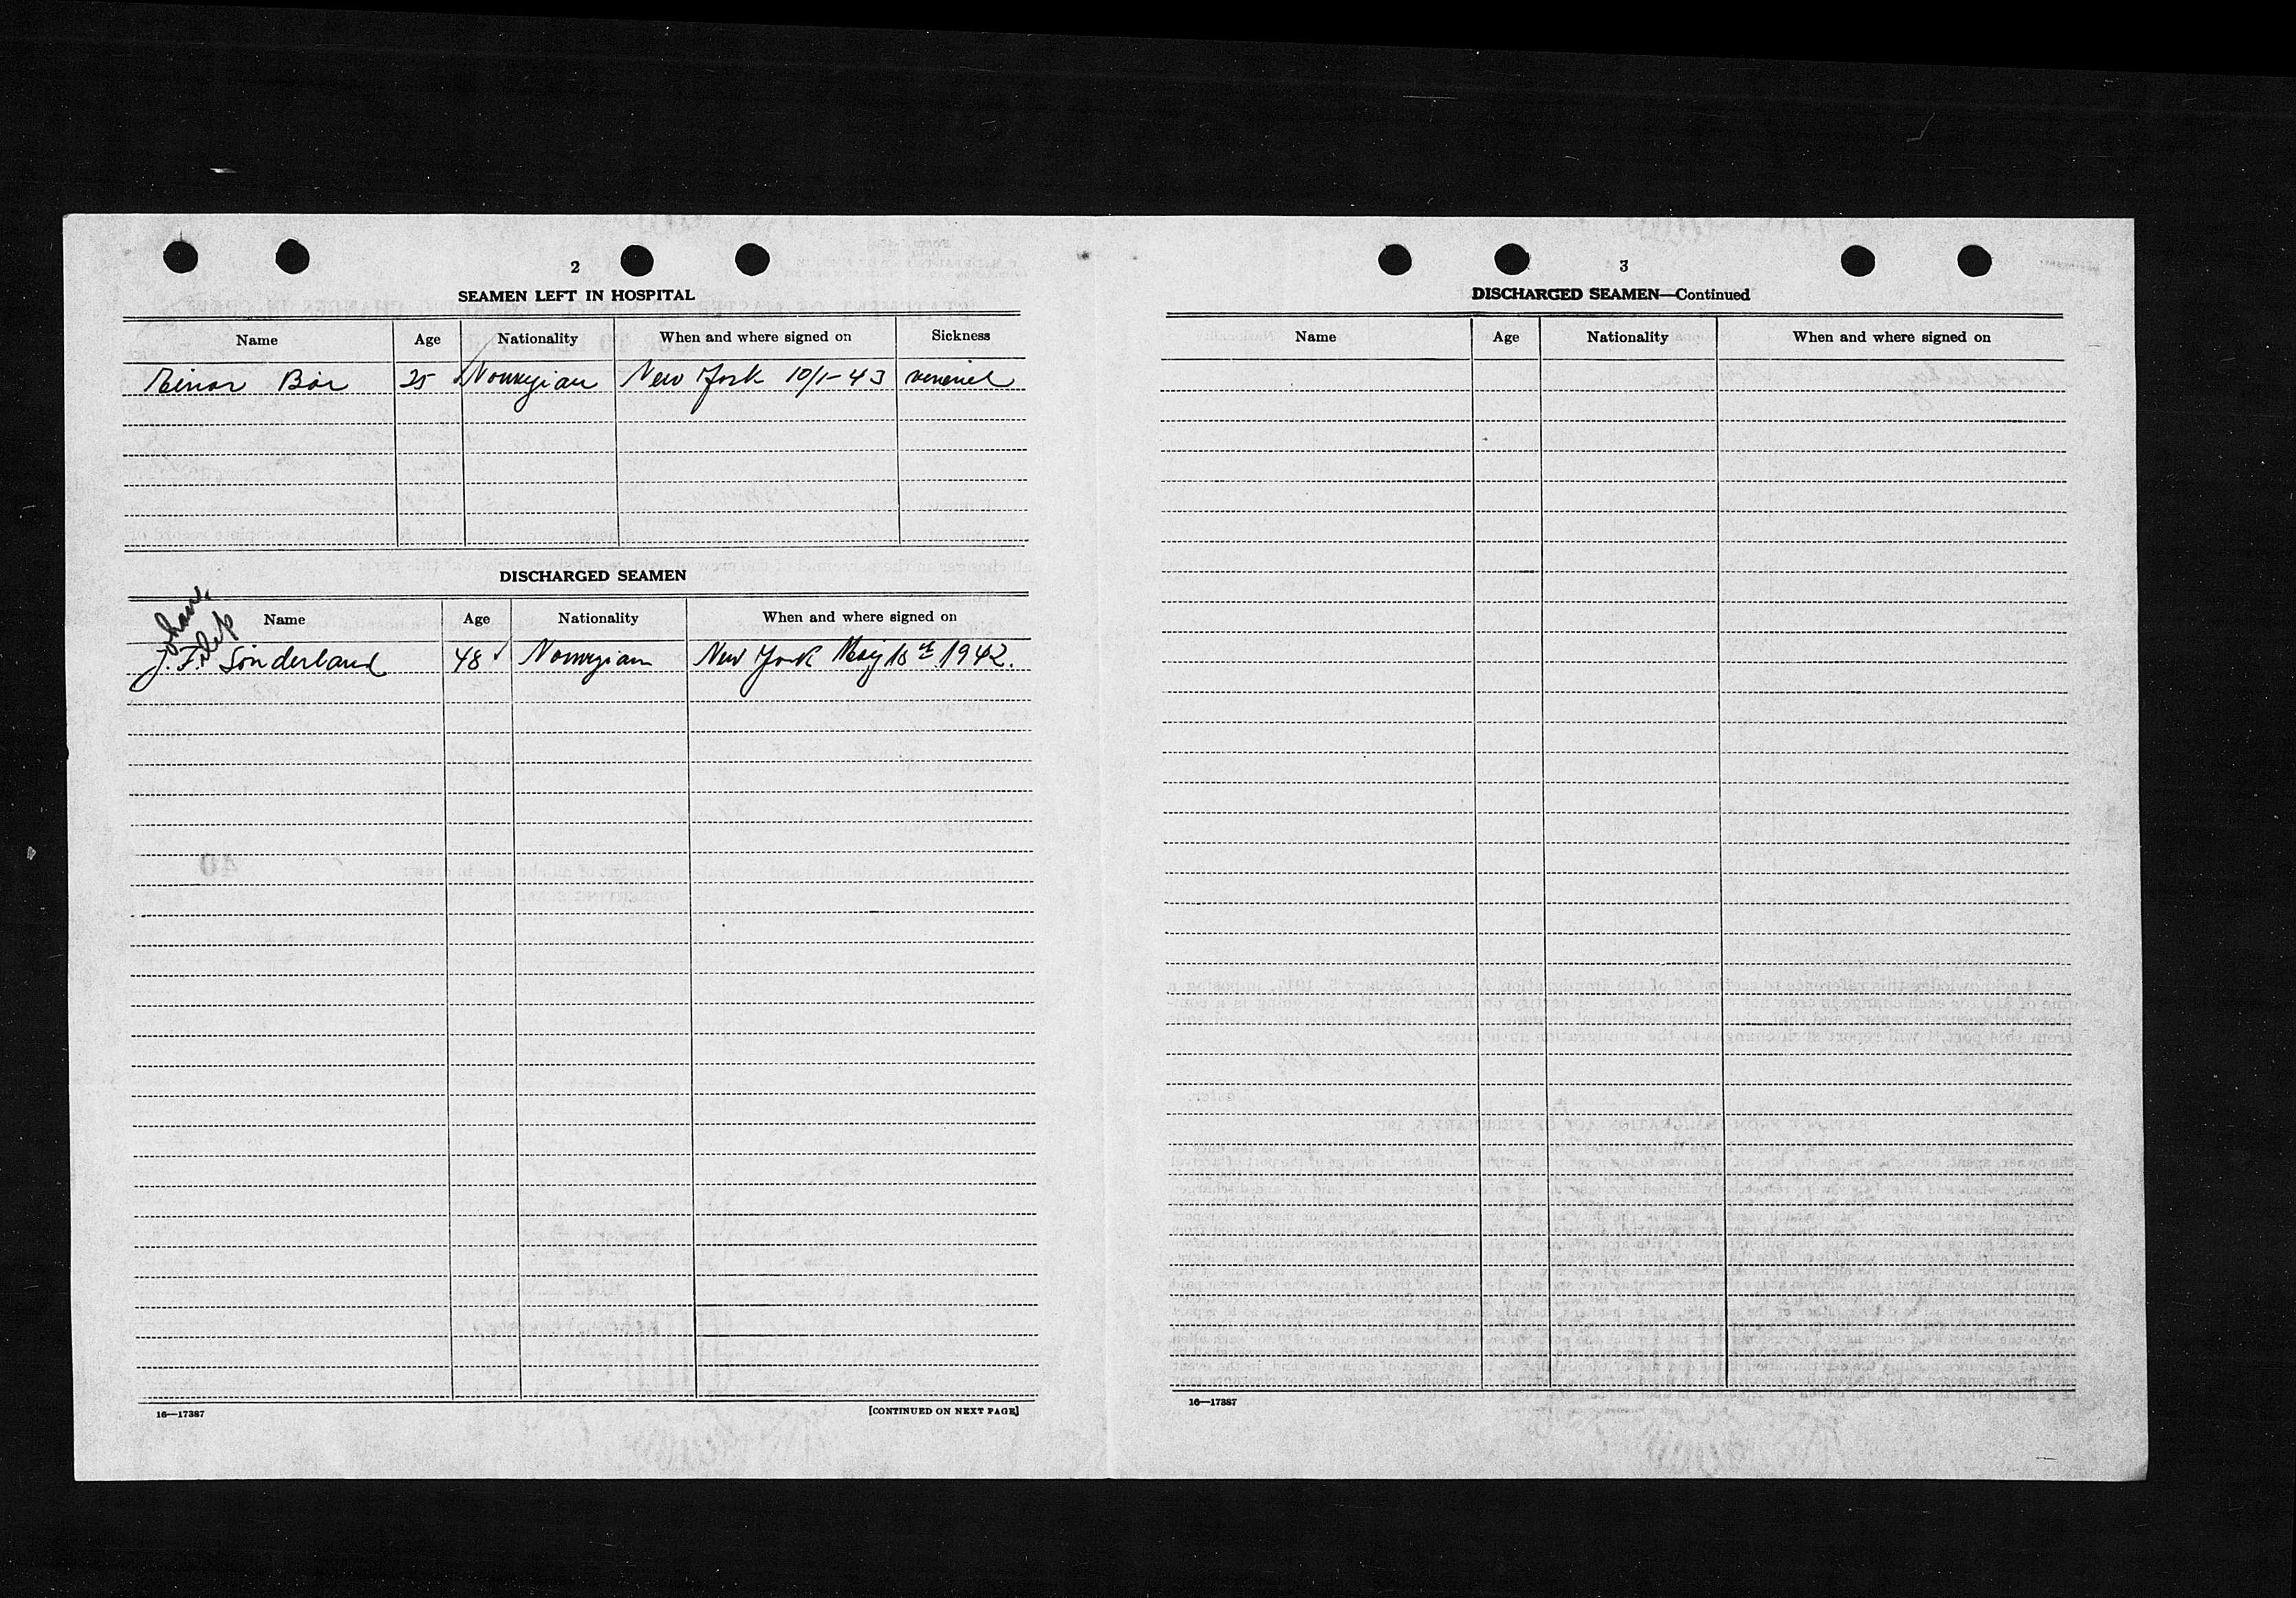 2
SEAMEN LEFT IN HOSPITAL
Name Age Nationality When and where signed on Sickness
Einar Bör 25 Norwegian New York 10/1-43 veneriel
DISCHARGED SEAMEN
Johan
Filip
Name Age Nationality When and where signed on
J. F. Sönderland 48 ✓ Norwegian New York May 18th 1942.
16—17387 [CONTINUED ON NEXT PAGE]
3
DISCHARGED SEAMEN—Continued
Name Age Nationality When and where signed on
16—17387